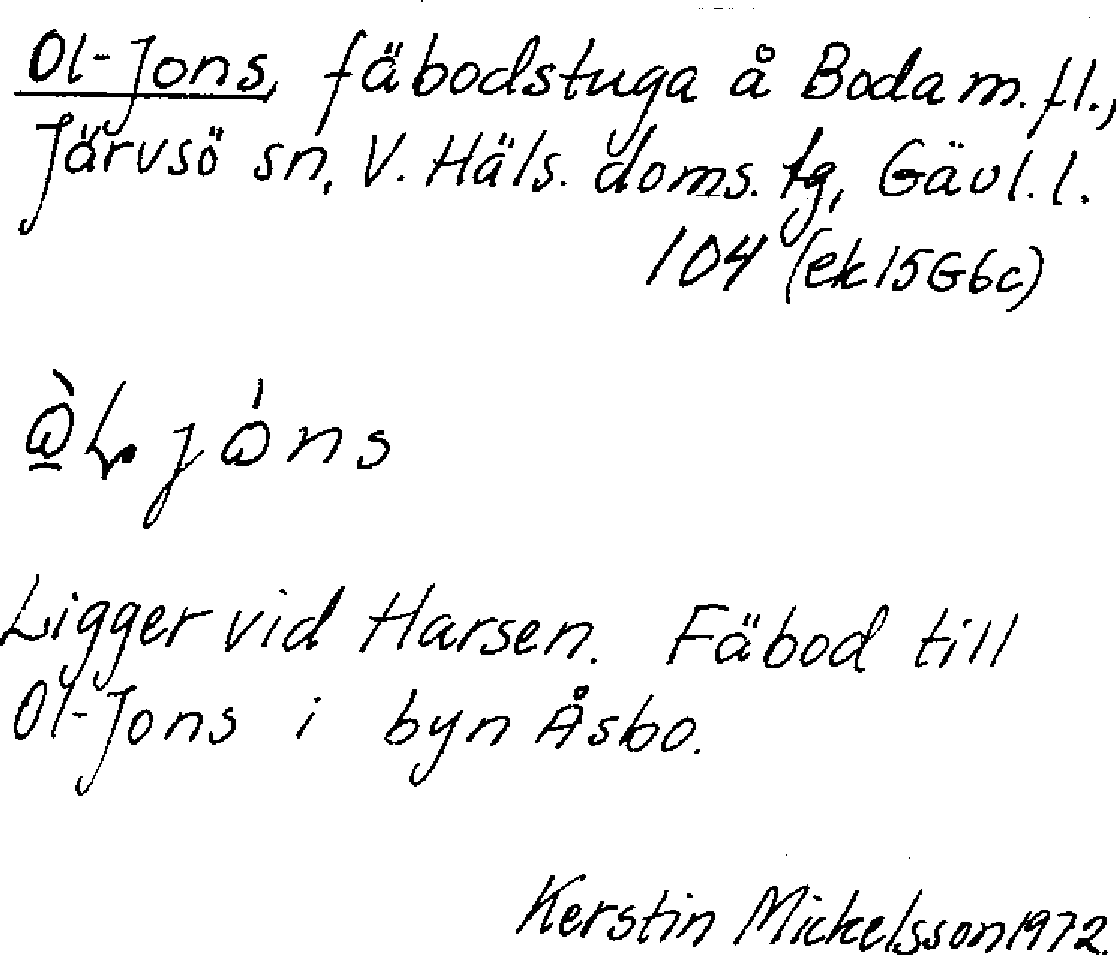 Ol-Jons, fäbodstuga å Boda m. fl.,
Järvsö sn, V. Häls. doms. tg, Gävl. l.
104 (ek 15G6c)
Ligger vid Harsen. Fäbod till
Ol-Jons i byn Åsbo.
Kerstin Mickelsson 1972.